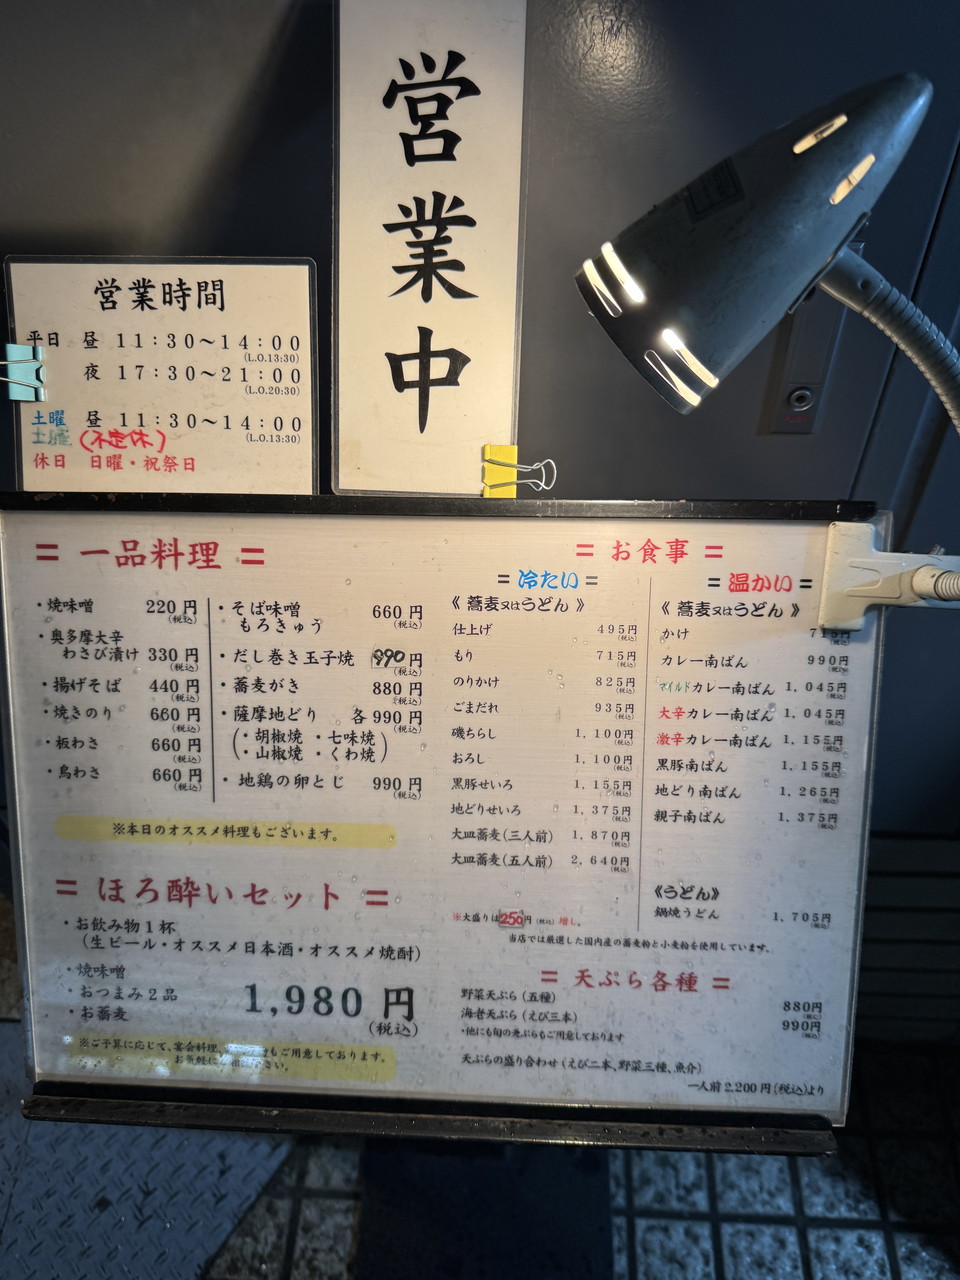 営業中
営業時間
平日 昼 11:30～14:00
(L.O.13:30)
夜 17:30～21:00
(L.O.20:30)
土曜 昼 11:30～14:00
(L.O.13:30)
土曜 (不定休)
休日 日曜・祝祭日
= 一品料理 =
・焼味噌 220円
(税込)
・奥多摩大辛
わさび漬け 330円
(税込)
・揚げそば 440円
(税込)
・焼きのり 660円
(税込)
・板わさ 660円
(税込)
・鳥わさ 660円
(税込)
・そば味噌
もろきゅう 660円
(税込)
・だし巻き玉子焼 990円
(税込)
・蕎麦がき 880円
(税込)
・薩摩地どり 各990円
(税込)
(・胡椒焼 ・七味焼
・山椒焼 ・くわ焼)
・地鶏の卵とじ 990円
(税込)
※本日のオススメ料理もございます。
= ほろ酔いセット =
・お飲み物1杯
(生ビール・オススメ日本酒・オススメ焼酎)
・焼味噌
・おつまみ2品
・お蕎麦
1,980円
(税込)
※ご予算に応じて、宴会料理、もご用意しております。
お気軽にご相談ください。
= お食事 =
= 冷たい =
《 蕎麦又はうどん 》
仕上げ 495円
(税込)
もり 715円
(税込)
のりかけ 825円
(税込)
ごまだれ 935円
(税込)
磯ちらし 1,100円
(税込)
おろし 1,100円
(税込)
黒豚せいろ 1,155円
(税込)
地どりせいろ 1,375円
(税込)
大皿蕎麦(三人前) 1,870円
(税込)
大皿蕎麦(五人前) 2,640円
(税込)
= 温かい =
《 蕎麦又はうどん 》
かけ 715円
(税込)
カレー南ばん 990円
(税込)
マイルドカレー南ばん 1,045円
(税込)
大辛カレー南ばん 1,045円
(税込)
激辛カレー南ばん 1,155円
(税込)
黒豚南ばん 1,155円
(税込)
地どり南ばん 1,265円
(税込)
親子南ばん 1,375円
(税込)
《うどん》
鍋焼うどん 1,705円
(税込)
※大盛りは250円(税込)増し。
当店では厳選した国内産の蕎麦粉と小麦粉を使用しています。
= 天ぷら各種 =
野菜天ぷら(五種) 880円
(税込)
海老天ぷら(えび三本) 990円
(税込)
・他にも旬の天ぷらもご用意しております
天ぷらの盛り合わせ(えび二本、野菜三種、魚介)
一人前2,200円(税込)より